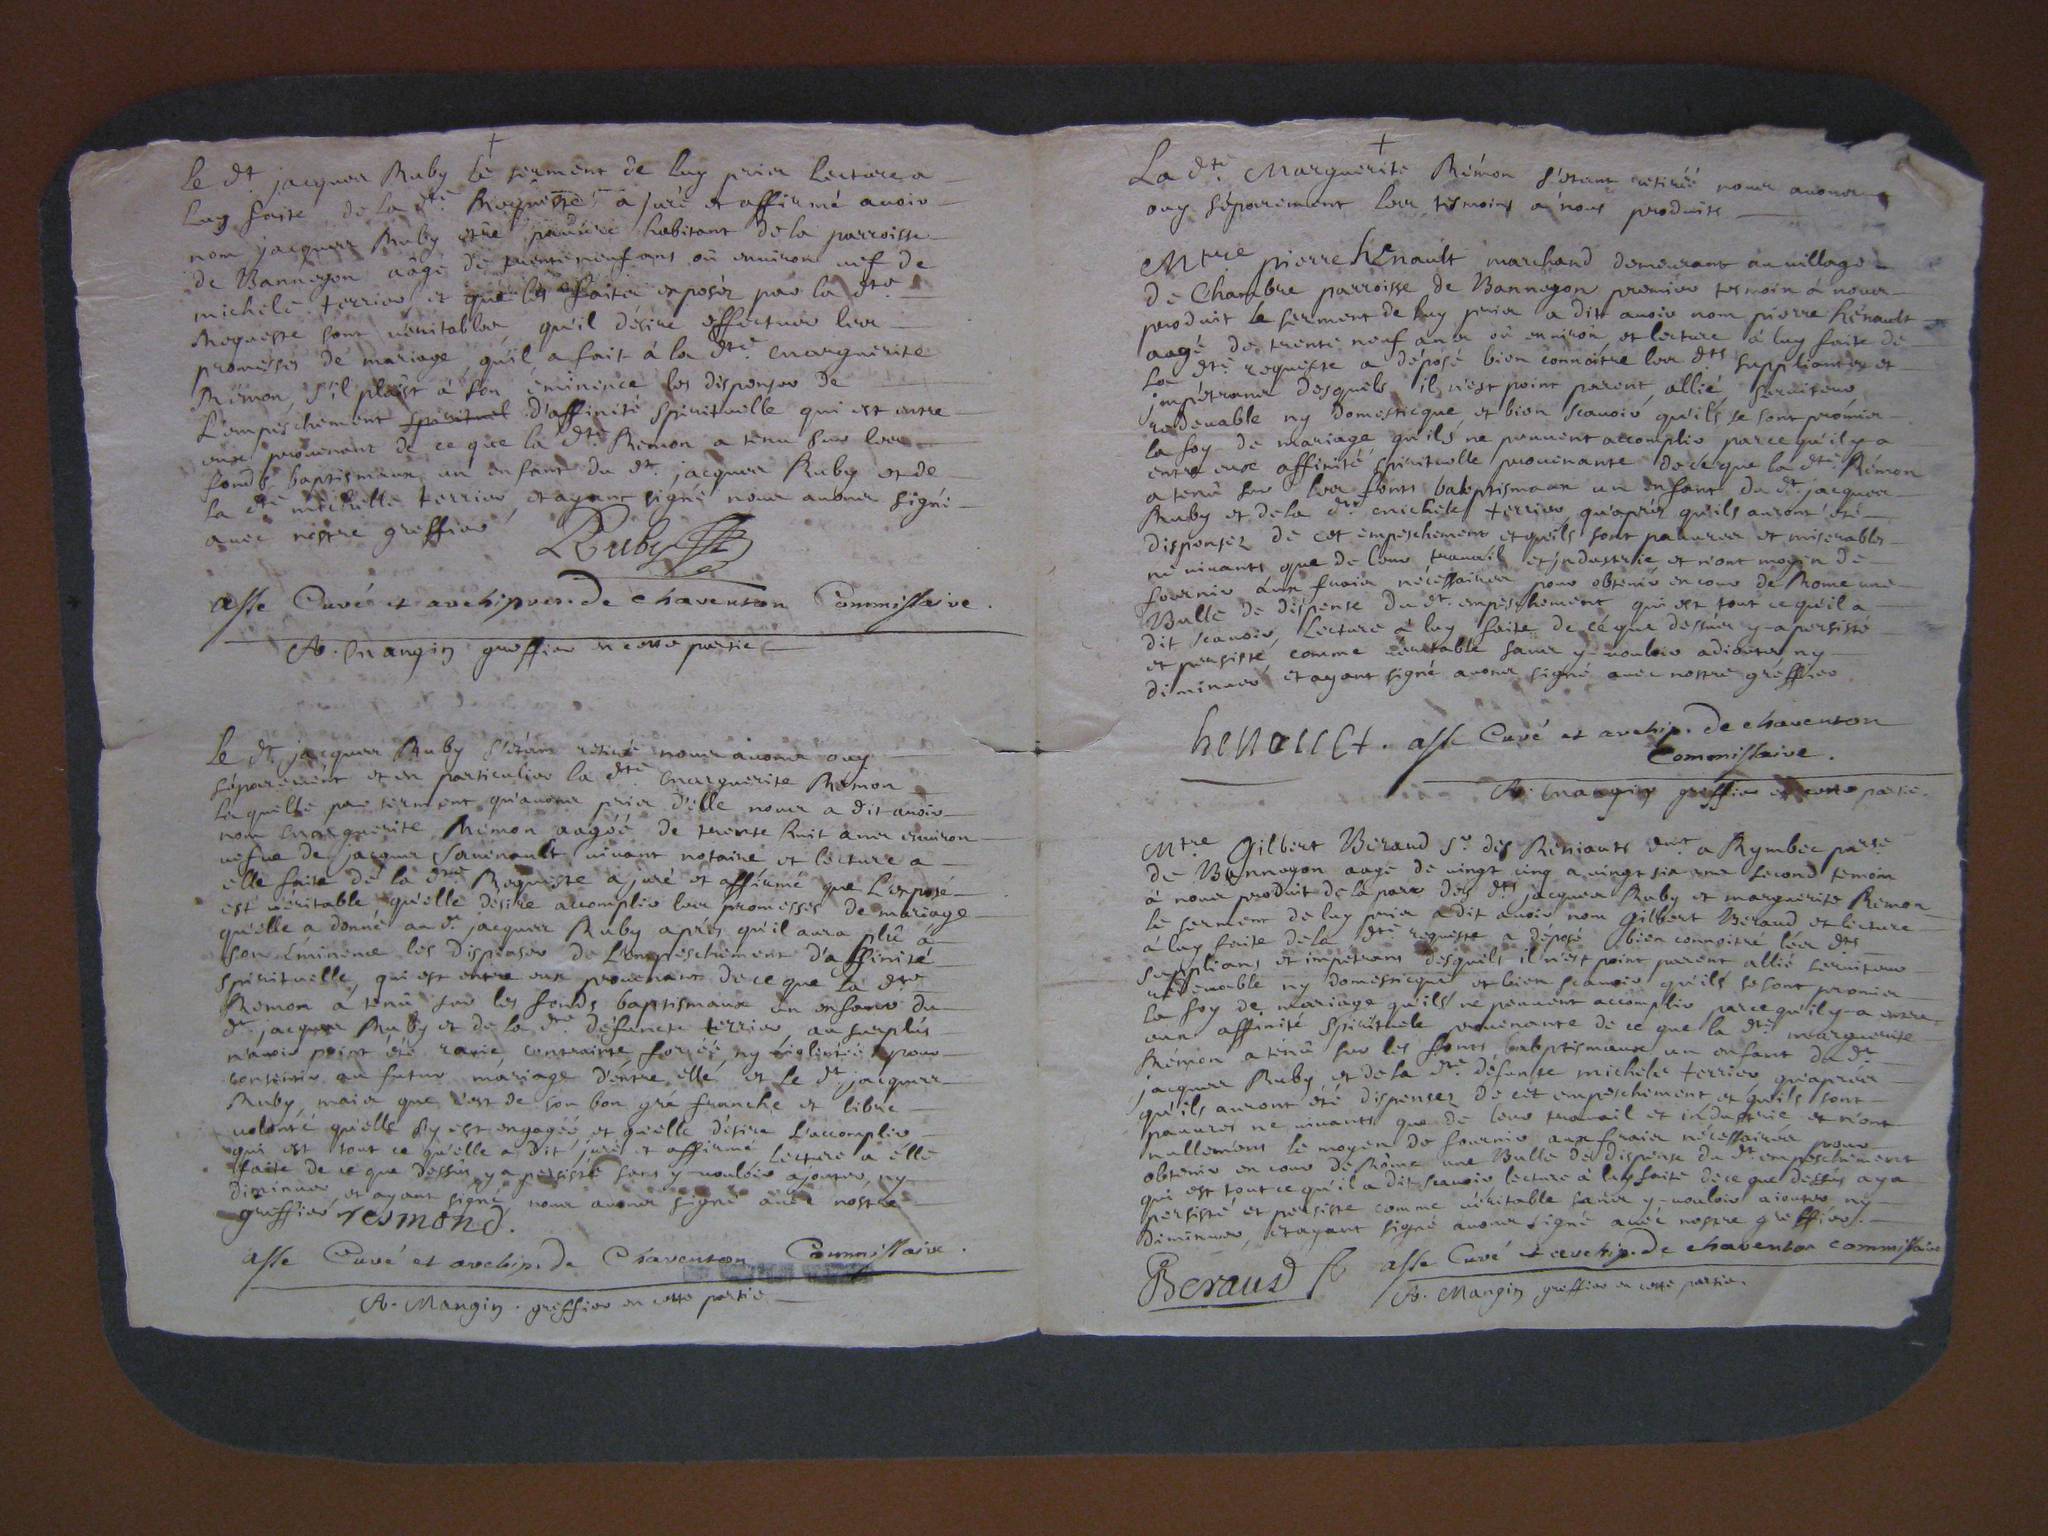 le dt. jacques Ruby le serment de luy pris lecture a
luy faite de la dte Requeste a juré et affirmé avoir
nom jacques Ruby estre pauvre habitant de la parroisse
de Bannegon aâgé de ans où environ vef de
michele terrier et que les faits exposéz par la dte
Requeste sont véritables qu'il désire effectuer les
promesses de mariage qu'il a fait à la dte marguerite
Rémon, s'il plaist à son éminence les dispenser de
L'empeschement spirituel d'affinité spirituelle qui est entre
eux provenant de ce que la dte Rémon a tenu sur les
fonds baptismaux un enfant du dt. jacques Ruby et de
la dte michelle terrier, et ayant signé nous avons signé
avec nostre greffier
Ruby
asse Curé et archipr. de charenton Commissaire.
A. Mangin greffier en cette partie
Le dt jacques Ruby s'étant retiré nous avons ouy
séparément et en particulier la dte marguerite Rémon
laquelle par serment qu'avons pris d'elle nous a dit avoir
nom marguerite Rémon aagéé de trente huit ans environ
vefve de jacques vivant notaire et lecture a
elle faite de la dte Requeste a juré et affirmé que L'exposé
est véritable qu'elle désire accomplir les promesses de mariage
qu'elle a donné au dt. jacques Ruby après qu'il aura plû à
son Eminence les dispenser de L'empeschement d'affinité
spirituelle, qui est entre eux provenant de ce que la dte
Rémon a tenû sur les fonds baptismaux un enfant du
dt jacques Ruby et de la dte défuncte terrier, au surplus
n'avoir point été ravie contrainte forcéé, ny violentéé pour
consentir au futur mariage d'entre elle et le dt. jacques
Ruby, mais que c'est de son bon gré franche et libre
volonté qu'elle s'y est engagéé et qu'elle désire L'accomplir
qui est tout ce qu'elle a dit juré et affirmé Lecture a elle
faite de ce que dessus y a persisté sans y vouloir ajouter ny
diminuer, et ayant signé nous avons signé avec nostre
greffier resmond.
asse Curé et archip. de Charenton Commissaire.
A. Mangin. greffier en cette partie
La dte. Marguerite Rémon s'etant retiréé nous avons
ouy séparement les tesmoins a nous produits
Mtre pierre hénault marchand demeurant au village
de Chambre parroisse de Bannegon premier tesmoin à nous
produit le serment de luy pris a dit avoir nom pierre hénault
aagé de trente neuf ans où environ et lecture à luy faite de
la dte requeste a déposé bien connoitre les dts suppliants et
impétrans desquels il n'est point parent allié serviteur
redevable ny domesticque et bien scavoir qu'ils se sont promis
la foy de mariage qu'ils ne peuvent accomplir parce qu'il y a
entre eux affinité spirituelle provenante de ce que la dte Rémon
a tenû sur les fonts babptismaux un enfant du dt jacques
Ruby et de la dte michele terrier qu'après qu'ils auront été
dispensez de cet empeschement et qu'ils sont pauvres et miserables
ne vivants que de leur travail et industrie et n'ont moyen de
fournir aux frais nécessaires pour obtenir en cour de Rome une
Bulle de dispense du dt. empeschement qui est tout ce qu'il a
dit scavoir, lecture à luy faite de ce que dessus y a persisté
et persiste comme véritable sans y vouloir adiouter ny
diminuer, et ayant signé avons signé avec nostre greffier
henault. asse Curé et archip. de charenton
Commissaire.
A. Mangin greffier en cette partie.
Mtre Gilbert Beraud Sr. des Reniauts a Rymbec parse
de Bannegon aagé de vingt cinq a vingt six ans second temoin
à nous produit de la part des dts jacques Ruby et marguerite Rémon
le serment de luy pris a dit avoir nom Gilbert Beraud et lecture
à luy faite de la dte requeste a déposé bien connoitre les dts
supplians et impétrans desquels il n'est point parent allié serviteur
redevable ny domesticque et bien scavoir qu'ils se sont promis
la foy de mariage qu'ils ne peuvent accomplir parce qu'il y a entre
eux affinité spirituele provenante de ce que la dte marguerite
Rémon a tenû sur les fonts babptismaux un enfant du dt
jacques Ruby et de la dte défunte michele terrier qu'après
qu'ils auront été dispensez de cet empeschement et qu'ils sont
pauvres ne vivants que de leur travail et industrie et n'ont
nullement le moyen de fournir aux frais nécessaires pour
obtenir en cour de Rome une Bulle de dispense du dt. empeschement
qui est tout ce qu'il a dit scavoir lecture à luy faite de ce que dessus a y a
persisté et persiste comme véritable sans y vouloir aiouter ny
diminuer, et ayant signé avons signé avec nostre greffier.
Beraud asse Curé et archip. de charenton commissaire
A. Mangin greffier en cette partie.